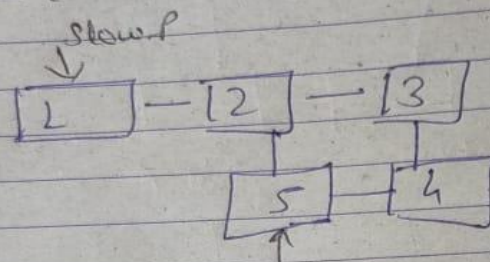 Slow.P
1 2 3
5 4